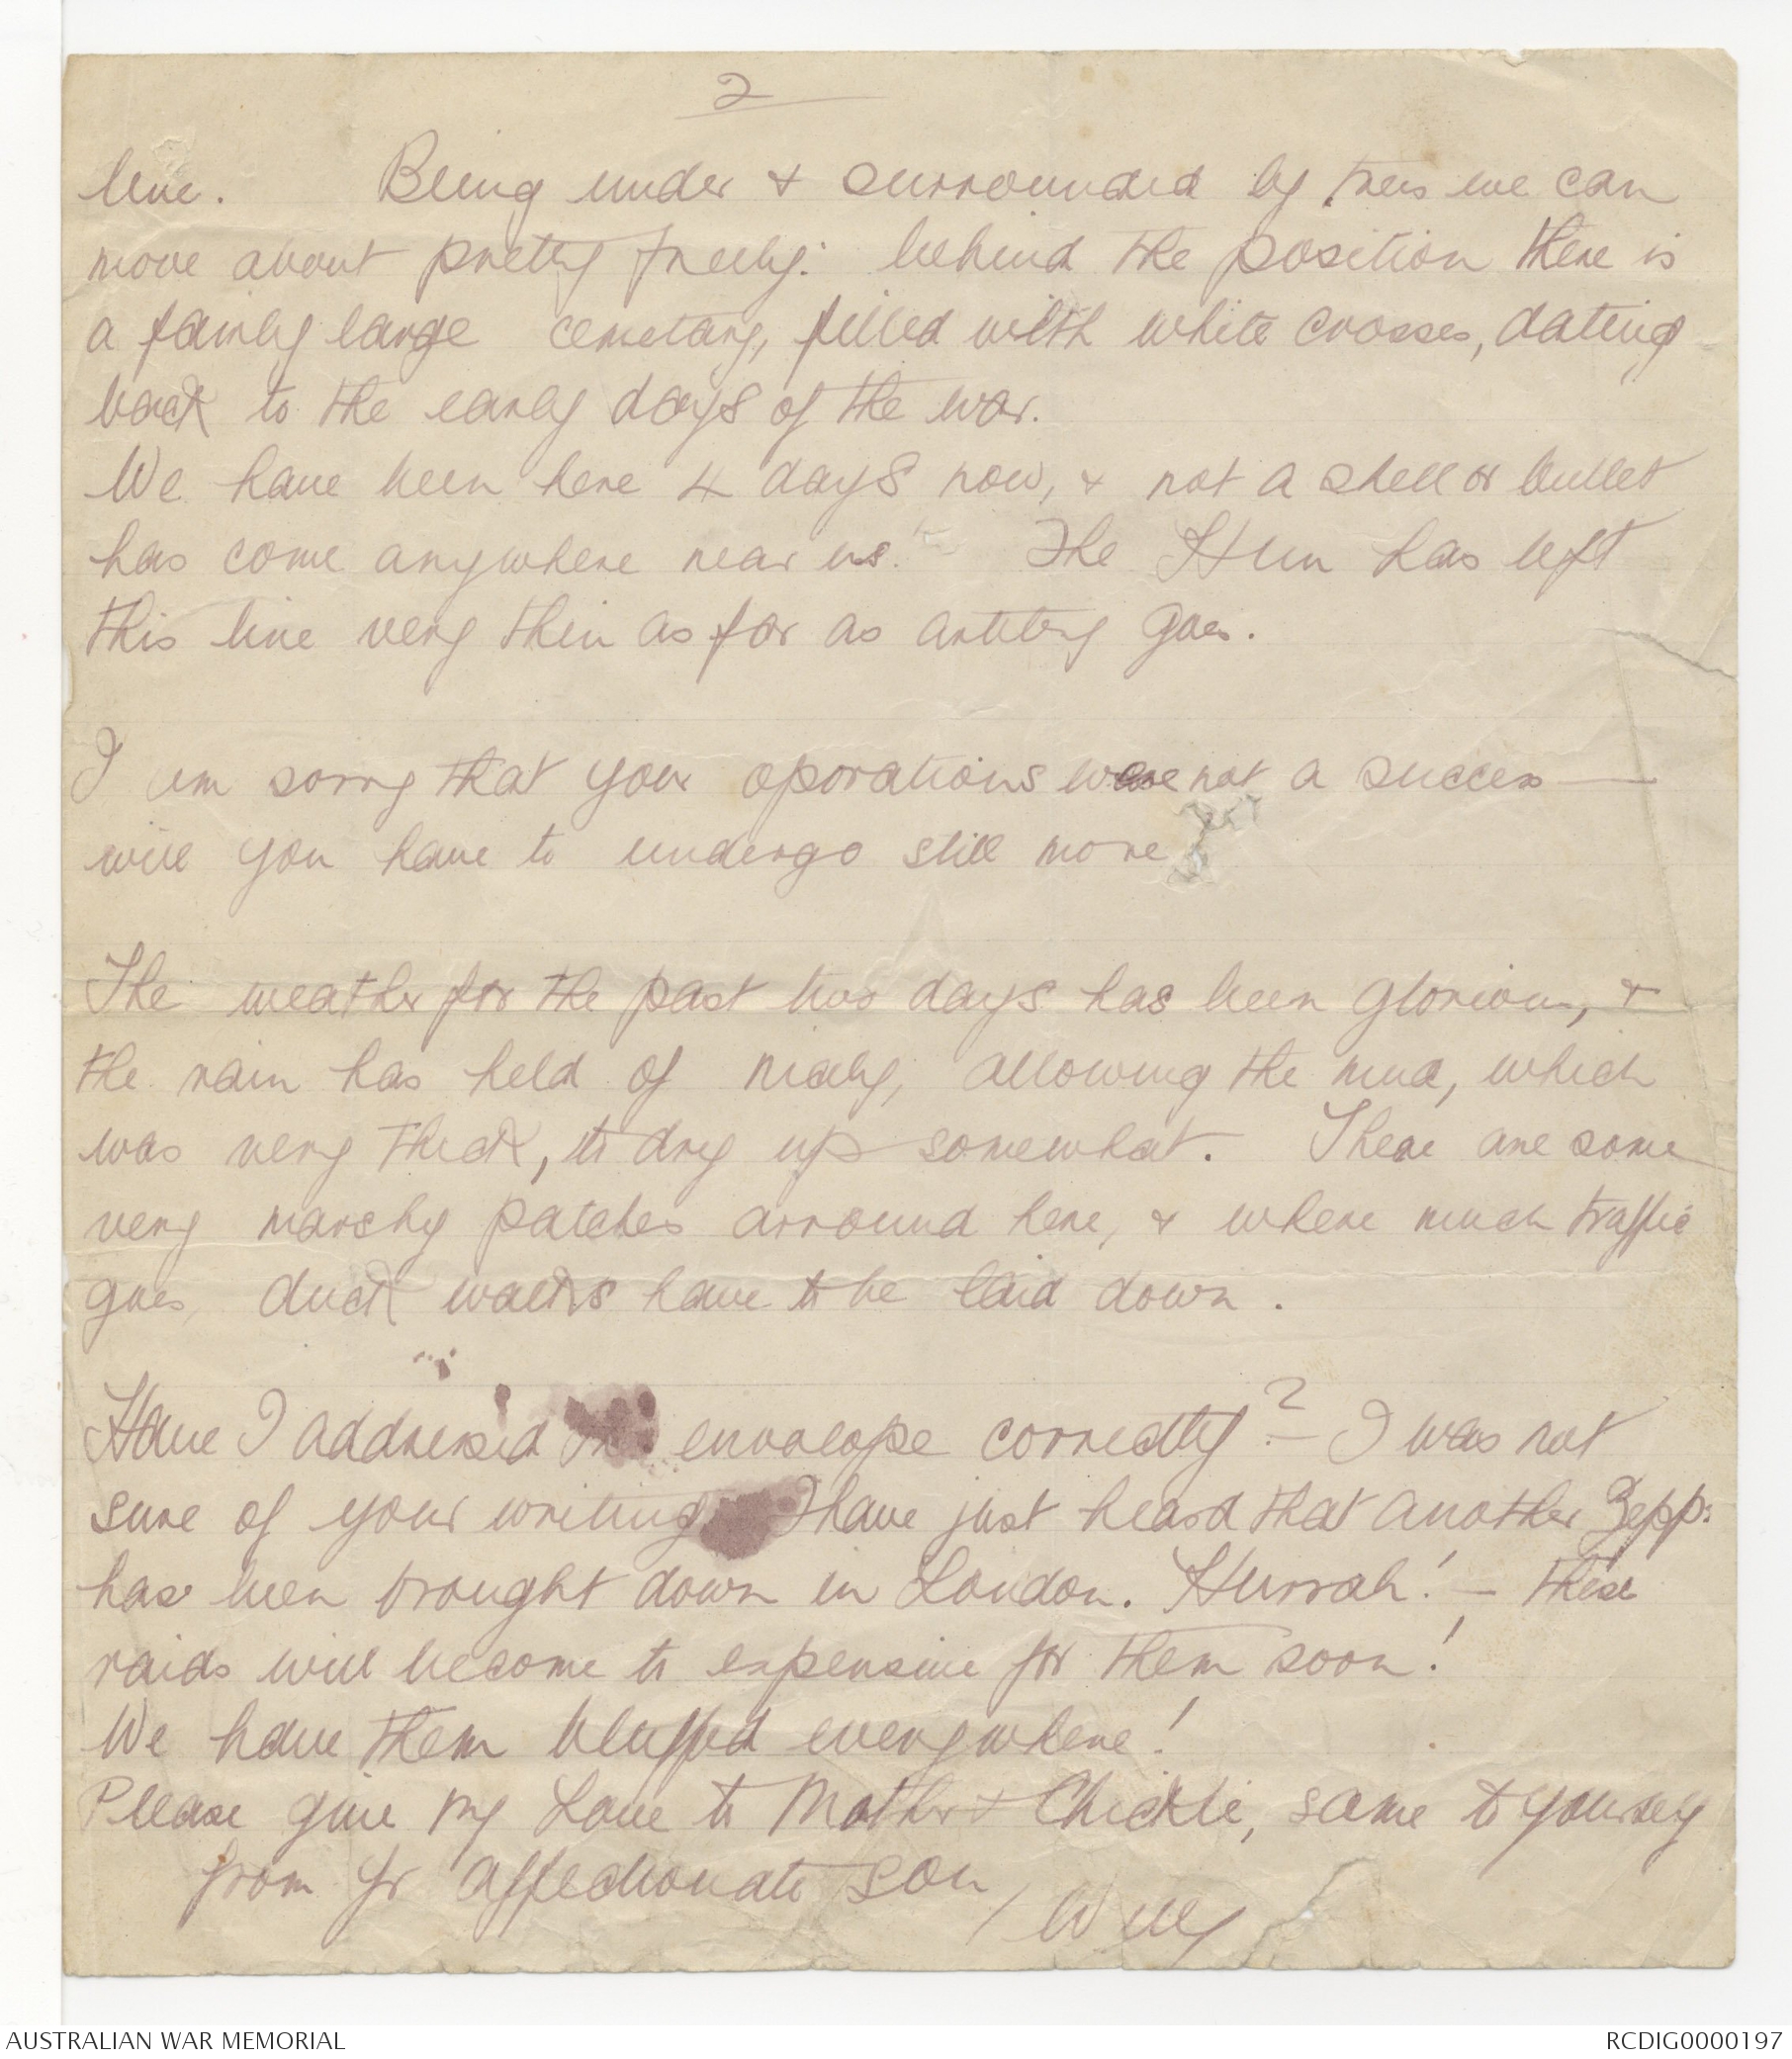 2
line. Being under & surrounded by trees we can
move about pretty freely: behind the position there is
a fairly large cemetary, filled with white crosses, dating
back to the early days of the war.
We have been here 4 days now, & not a shell or bullet
has come anywhere near us. The Hun has left
this line very thin as far as artillery goes.
I am sorry that your oporations were not a success —
will you have to undergo still more
The weather for the past two days has been glorious, &
the rain has held of nicely, allowing the mud, which
was very thick, to dry up somewhat. There are some
very marshy patches arround here, & where much traffic
goes, duck walks have to be laid down.
Have I addressed the envelope correctly? — I was not
sure of your writing I have just heard that another Zepp.
has been brought down in London. Hurrah! — these
raids will become to expensive for them soon!
We have them bluffed everywhere!
Please give my Love to Mother & Chickie, same to yourself
from yr affectionate son,
Willy
AUSTRALIAN WAR MEMORIAL
RCDIG0000197